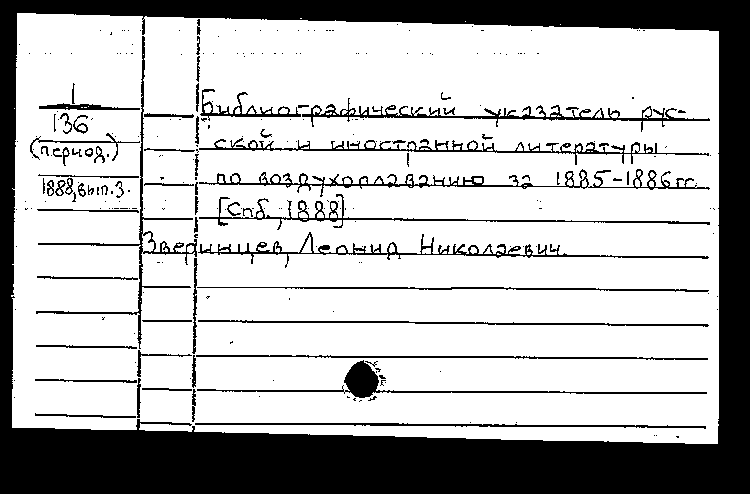 1
136
(период.)
1888, вып. 3.
Библиографический указатель рус-
ской и иностранной литературы
по воздухоплаванию за 1885-1886 гг.
[Спб., 1888]
Зверинцев, Леонид Николаевич.